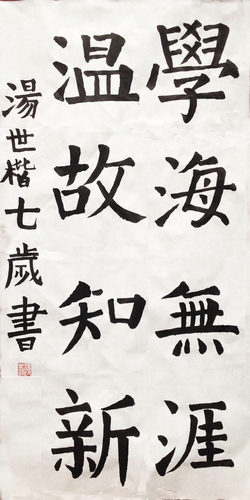 學海無涯
温故知新
湯世楷七歲書